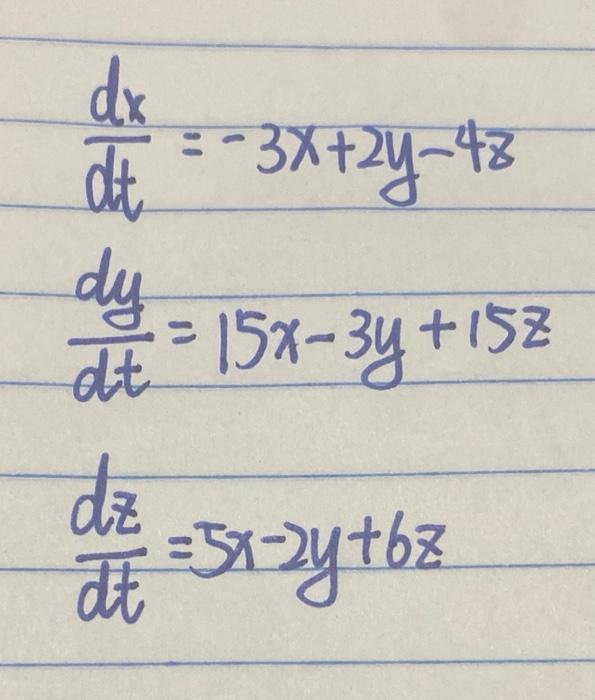 dx/dt = -3x+2y-4z
dy/dt = 15x-3y+15z
dz/dt =5x-2y+6z